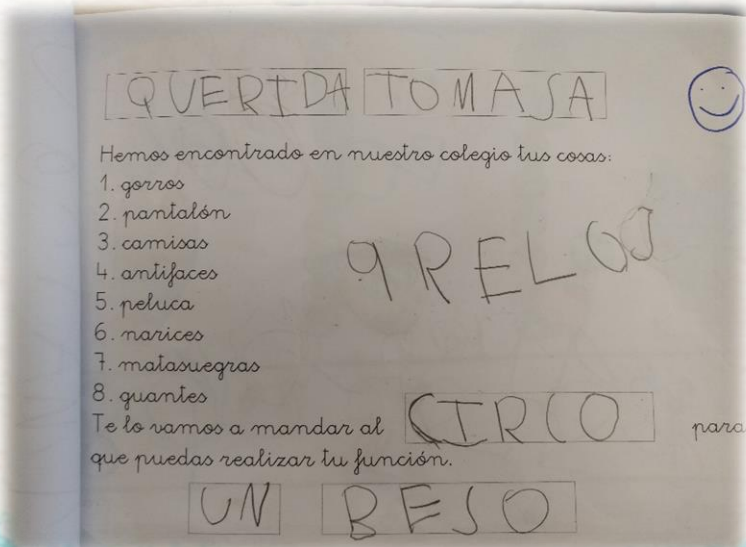 QUERIDA TOMASA
Hemos encontrado en nuestro colegio tus cosas:
1. gorros
2. pantalón
3. camisas
4. antifaces
5. peluca
6. narices
7. matasuegras
8. guantes
9 RELOJ
Te lo vamos a mandar al CIRCO para
que puedas realizar tu función.
UN BESO